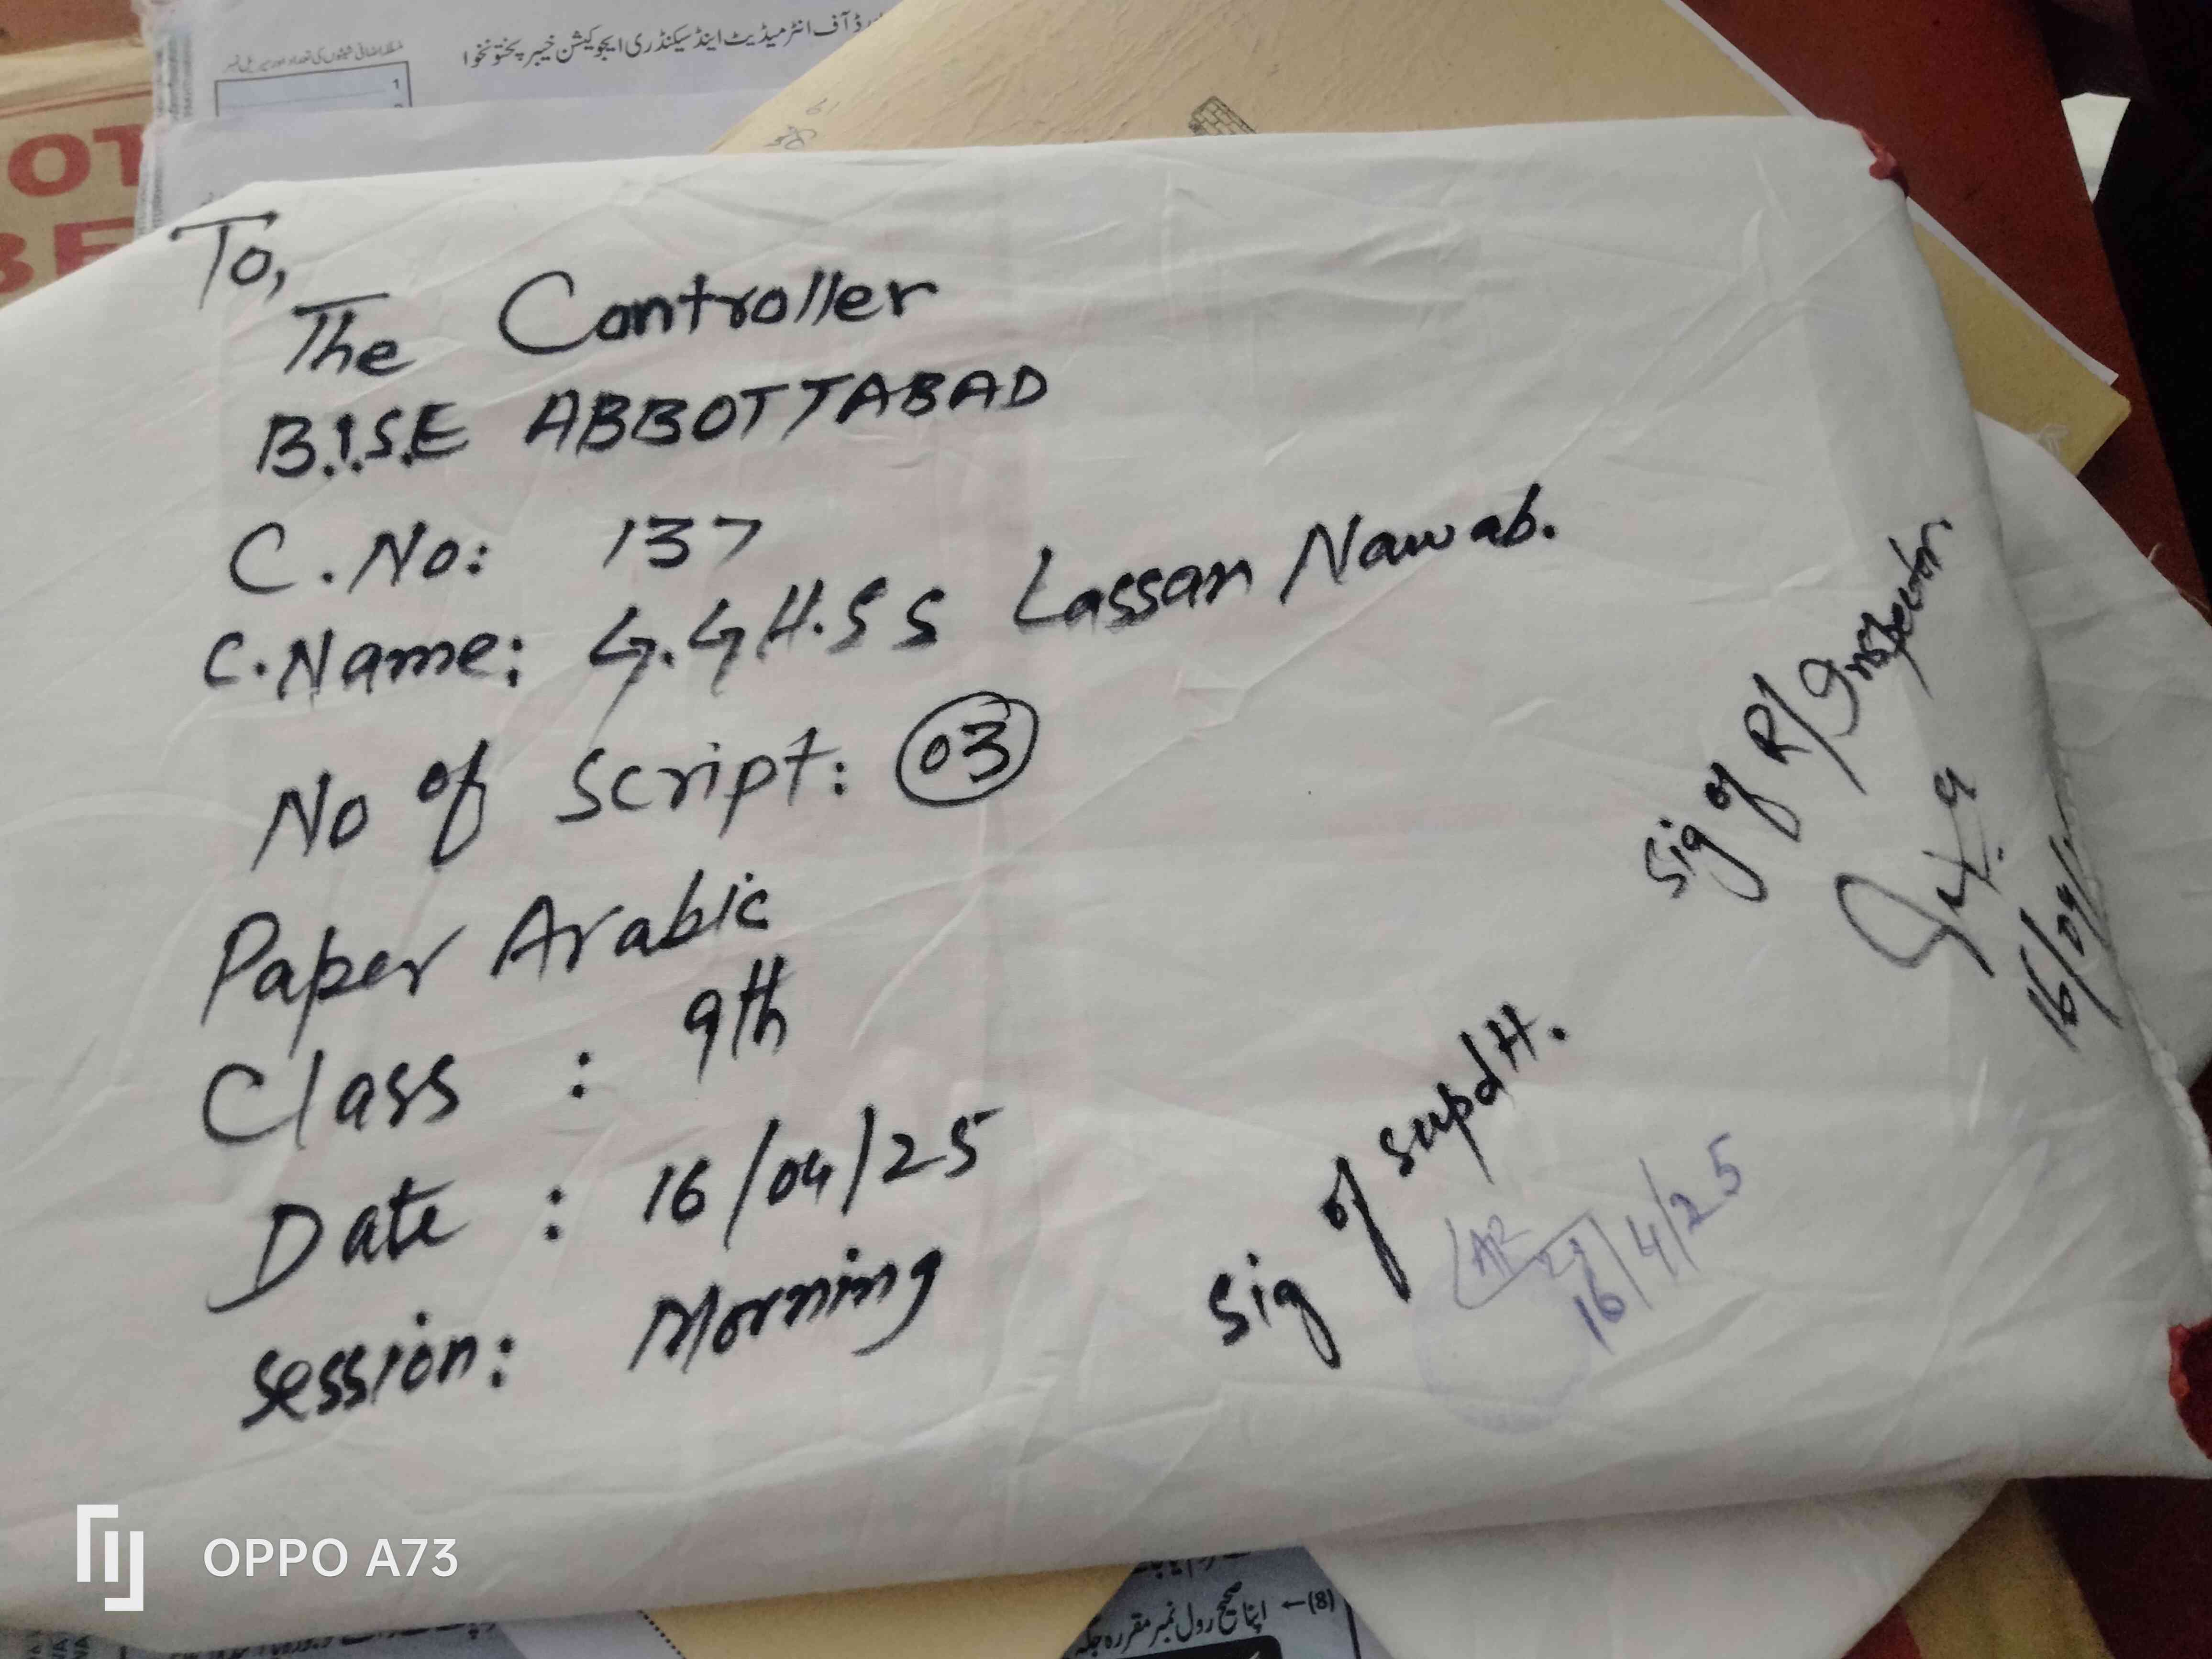 بورڈ آف انٹرمیڈیٹ اینڈ سیکنڈری ایجوکیشن خیبر پختونخوا
1
OT
BE
To,
The Controller
B.I.S.E ABBOTTABAD
C.No: 137
C.Name: G.G.H.S S Lassan Nawab.
No of Script: 03
Paper Arabic
Class : 9th
Date : 16/04/25
Session: Morning
Sig of R/Inspector
16/04/
Sig of supdtt.
16/4/25
OPPO A73
(8)← اپنا صحیح رول نمبر مقررہ جگہ